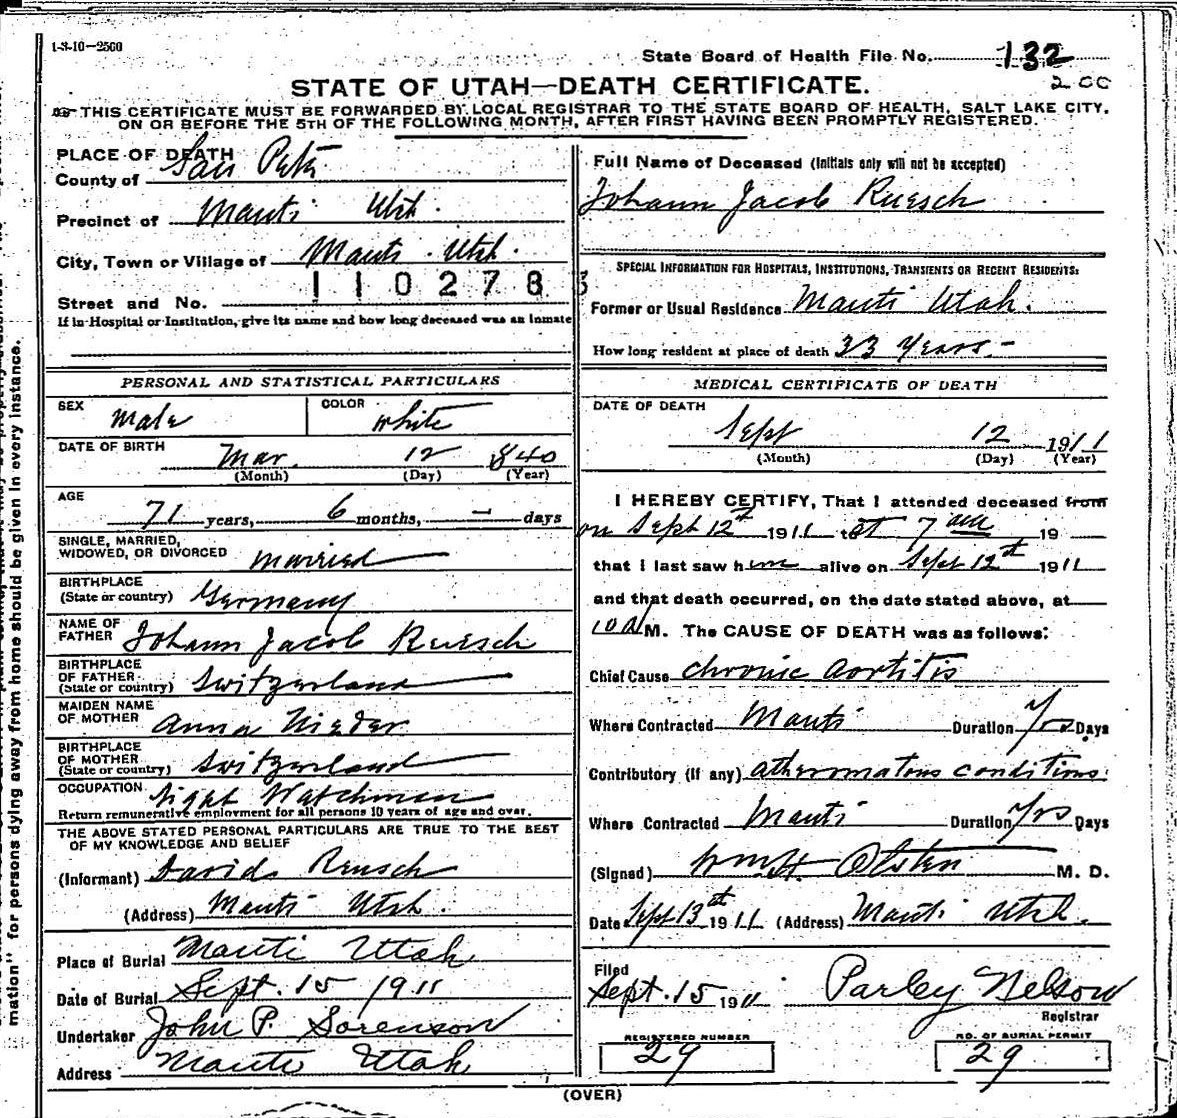 1-3-10—2500
State Board of Health File No. 132
200
STATE OF UTAH—DEATH CERTIFICATE.
THIS CERTIFICATE MUST BE FORWARDED BY LOCAL REGISTRAR TO THE STATE BOARD OF HEALTH, SALT LAKE CITY,
ON OR BEFORE THE 5TH OF THE FOLLOWING MONTH, AFTER FIRST HAVING BEEN PROMPTLY REGISTERED.
PLACE OF DEATH
County of San Pete
Precinct of Manti Utah.
City, Town or Village of Manti Utah.
Street and No. 110278 3
If in Hospital or Institution, give its name and how long deceased was an inmate
PERSONAL AND STATISTICAL PARTICULARS
SEX Male COLOR White
DATE OF BIRTH Mar. 12 840
(Month) (Day) (Year)
AGE 71 years, 6 months, — days
SINGLE, MARRIED,
WIDOWED, OR DIVORCED Married
BIRTHPLACE
(State or country) Germany
NAME OF
FATHER Johann Jacob Ruesch
BIRTHPLACE
OF FATHER
(State or country) Switzerland
MAIDEN NAME
OF MOTHER Anna Nieder
BIRTHPLACE
OF MOTHER
(State or country) Switzerland
OCCUPATION Night Watchman
Return remunerative employment for all persons 10 years of age and over.
THE ABOVE STATED PERSONAL PARTICULARS ARE TRUE TO THE BEST
OF MY KNOWLEDGE AND BELIEF
(Informant) David Reusch
(Address) Manti Utah.
Place of Burial Manti Utah
Date of Burial Sept. 15 1911
Undertaker John P. Sorenson
Address Manti Utah
Full Name of Deceased (Initials only will not be accepted)
Johann Jacob Ruesch
SPECIAL INFORMATION FOR HOSPITALS, INSTITUTIONS, TRANSIENTS OR RECENT RESIDENTS:
Former or Usual Residence Manti Utah.
How long resident at place of death 33 Years.-
MEDICAL CERTIFICATE OF DEATH
DATE OF DEATH
Sept 12 1911
(Month) (Day) (Year)
I HEREBY CERTIFY, That I attended deceased from
on Sept 12th 1911 to at 7 am 19
that I last saw him alive on Sept 12th 1911
and that death occurred, on the date stated above, at
10 A M. The CAUSE OF DEATH was as follows:
Chief Cause Chronic Aortitis
Where Contracted Manti Duration Yrs Days
Contributory (if any) atheromatous conditions.
Where Contracted Manti Duration Yrs Days
(Signed) Wm H Olsten M. D.
Date Sept 13th 1911 (Address) Manti Utah.
Filed
Sept. 15 1911 Parley Nelson
Registrar
REGISTERED NUMBER
29
NO. OF BURIAL PERMIT
29
(OVER)
mation" for persons dying away from home should be given in every instance.